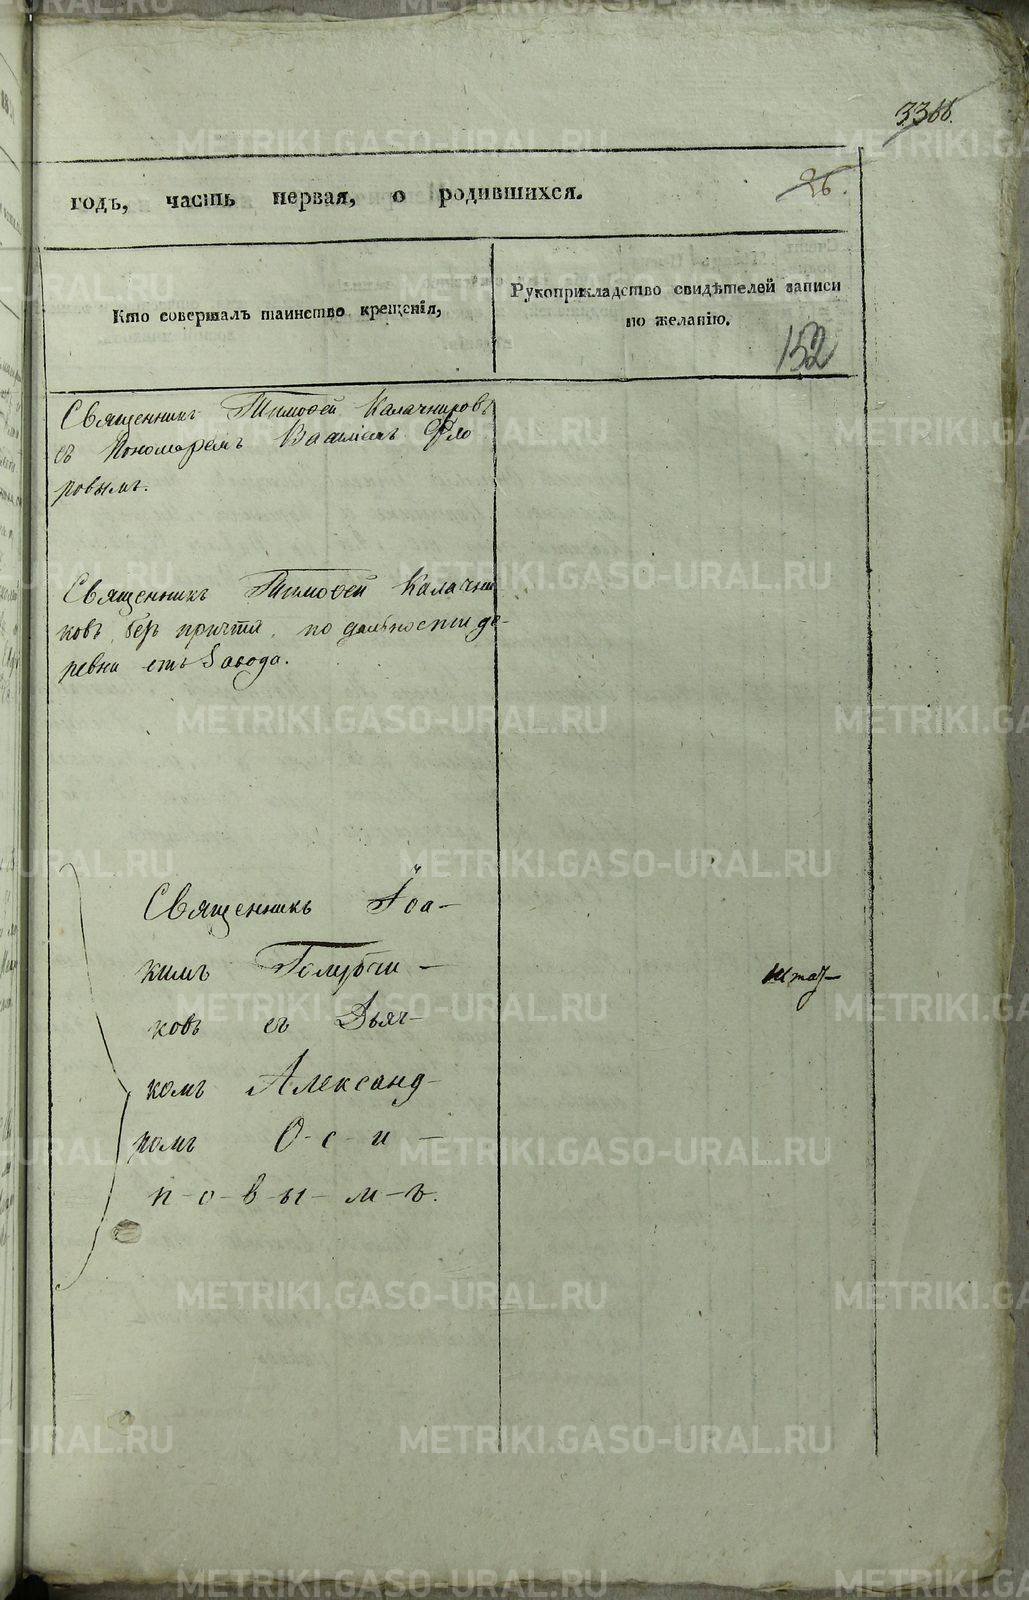 26.
годъ, часть первая, о родившихся.
Кто совершалъ таинство крещенія,
Рукоприкладство свидѣтелей записи
по желанію.
152
Священникъ Тимофей Калачниковъ
съ Пономаремъ Васіліемъ Фло
ровымъ.
Священникъ Тимофей Калачни
ковъ, безъ причта, по дальности де-
ревни отъ Завода.
Священникъ Іоа-
кимъ Голубчи-
ковъ съ Дьяч-
комъ Александ-
ромъ О-с-и-
п-о-в-ы-м-ъ.
METRIKI.GASO-URAL.RU